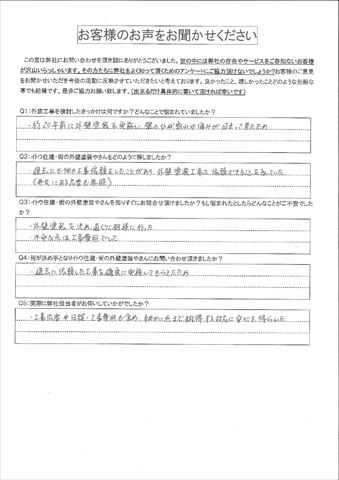 お客様のお声をお聞かせください
この度は弊社にお問い合わせを頂き誠にありがとうございました。世の中には弊社の存在やサービスをご存知ないお客様
が沢山いらっしゃいます。その方たちに弊社をよく知って頂くためのアンケートにご協力頂けないでしょうか?お客様のご意見
をお聞かせいただき今後の活動に反映させていただきたいと考えております。良かったこと、嬉しかったことどのような些細な
事でも結構です。是非ご協力お願い致します。(出来るだけ具体的に書いて頂ければ幸いです)
Q1:外装工事を検討したきっかけは何ですか?どんなことで悩まれていましたか?
・約20年前に外壁塗装を実施し、壁のひび割れや傷みが目立って来たため
Q2:イトウ住建・街の外壁塗装やさんをどのように探しましたか?
・過去にも他の工事依頼をしたことがあり、外壁塗装工事も依頼できることを知っていた
(折込による広告も参照)
Q3:イトウ住建・街の外壁塗装やさんを知りすぐにお問合せ頂けましたか?もし悩まれたとしたらどんなことがご不安でした
か?
・外壁塗装を決め、直ぐに相談に行った
・不安な点は工事費用でした
Q4:何が決め手となりイトウ住建・街の外壁塗装やさんにお問い合わせ頂きましたか?
・過去に依頼した工事を確実に実施してもらえたため
Q5:実際に弊社担当者がお伺いしていかがでしたか?
・工事内容や日程・工事費用も含め、細かい点まで説得する対応に安心を得られた